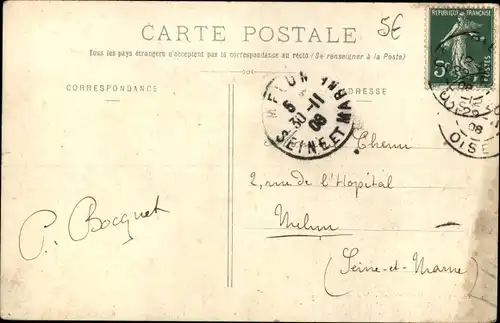 CARTE POSTALE
5€
Tous les pays étrangers n'acceptent pas la correspondance au recto (Se renseigner à la Poste)
CORRESPONDANCE
ADRESSE
REPUBLIQUE FRANÇAISE
5c
POSTES
MELUN
5
30-11
08
SEINE ET MARNE
29
08
OISE
Chenu
2, rue de l'Hôpital
Melun
(Seine-et-Marne)
P. Bocquet